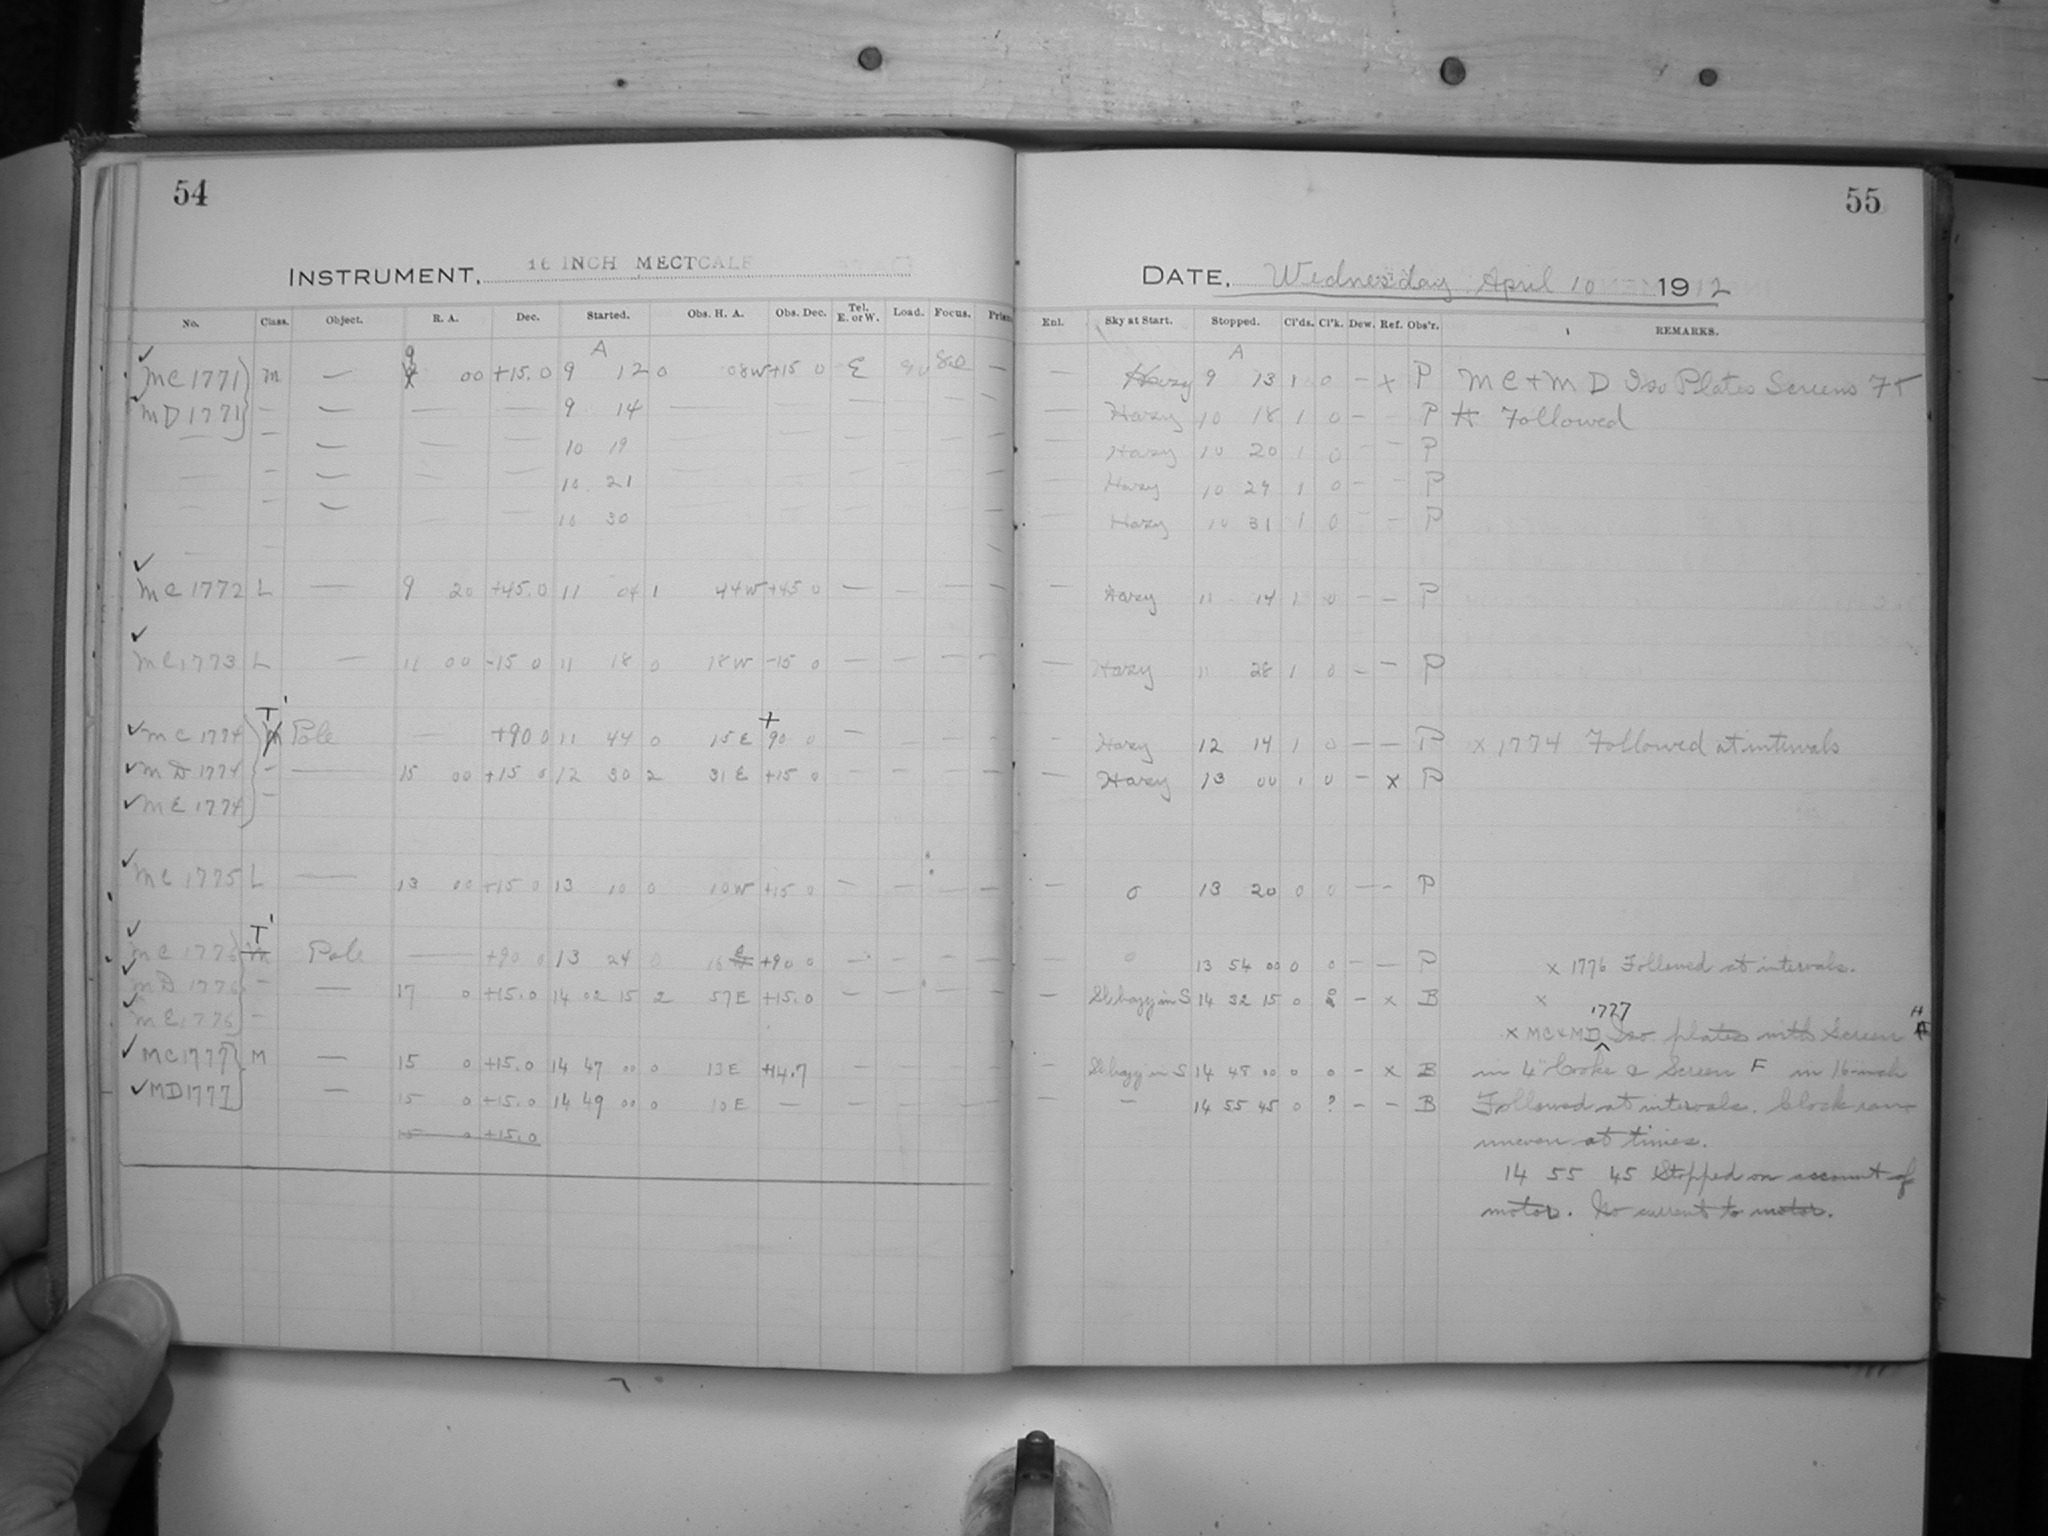 54
INSTRUMENT, 16 INCH MECTCALF
No. Class. Object. R. A. Dec. Started. Obs. H. A. Obs. Dec. Tel. E. or W. Load. Focus. Prism
A
MC 1771 M — 9 00 +15.0 9 12 0 08W +15 0 E —
MD 1771 — — — — 9 14 — — — — — —
— — — — — 10 19 — — — — — —
— — — — — 10 21 — — — — — —
— — — — — 10 30 — — — — — —
MC 1772 L — 9 20 +45.0 11 04 1 44W +45 0 — — — —
MC 1773 L — 11 00 -15 0 11 18 0 18W -15 0 — — — —
T'
MC 1774 M Pole — +90 0 11 44 0 15 E +90 0 — — — —
MD 1774 — — 15 00 +15 0 12 30 2 31 E +15 0 — — — —
ME 1774 —
MC 1775 L — 13 00 +15 0 13 10 0 10W +15 0 — — — —
T'
MC 1776 M Pole — +90 0 13 24 0 16 E +90 0 — — — —
MD 1776 — — 17 0 +15.0 14 02 15 2 57 E +15.0 — — — —
ME 1776 —
MC 1777 M — 15 0 +15.0 14 47 00 0 13 E +14.7 — — — —
MD 1777 — 15 0 +15.0 14 49 00 0 10 E — — — — —
15 0 +15.0
55
DATE, Wednesday April 10 1912
Enl. Sky at Start. Stopped. Cl'ds. Cl'k. Dew. Ref. Obs'r. REMARKS.
A
— Hazy 9 13 1 0 — x P MC + MD Iso Plates Screens F +
— Hazy 10 18 1 0 — — P H Followed
— Hazy 10 20 1 0 — — P
— Hazy 10 29 1 0 — — P
— Hazy 10 31 1 0 — — P
— Hazy 11 14 1 0 — — P
— Hazy 11 28 1 0 — — P
— Hazy 12 14 1 0 — — P x 1774 Followed at intervals
— Hazy 13 00 1 0 — x P
— 0 13 20 0 0 — — P
— 0 13 54 00 0 0 — — P x 1776 Followed at intervals.
— Sl. hazy in S 14 32 15 0 0 — x B x
1777
x MC & MD Iso plates with Screen H
— Sl. hazy in S 14 48 00 0 0 — x B in 4" Cooke & Screen F in 16-inch
— — 14 55 45 0 ? — — B Followed at intervals. Clock ran
uneven at times.
14 55 45 Stopped on account of
motor. No current to motor.